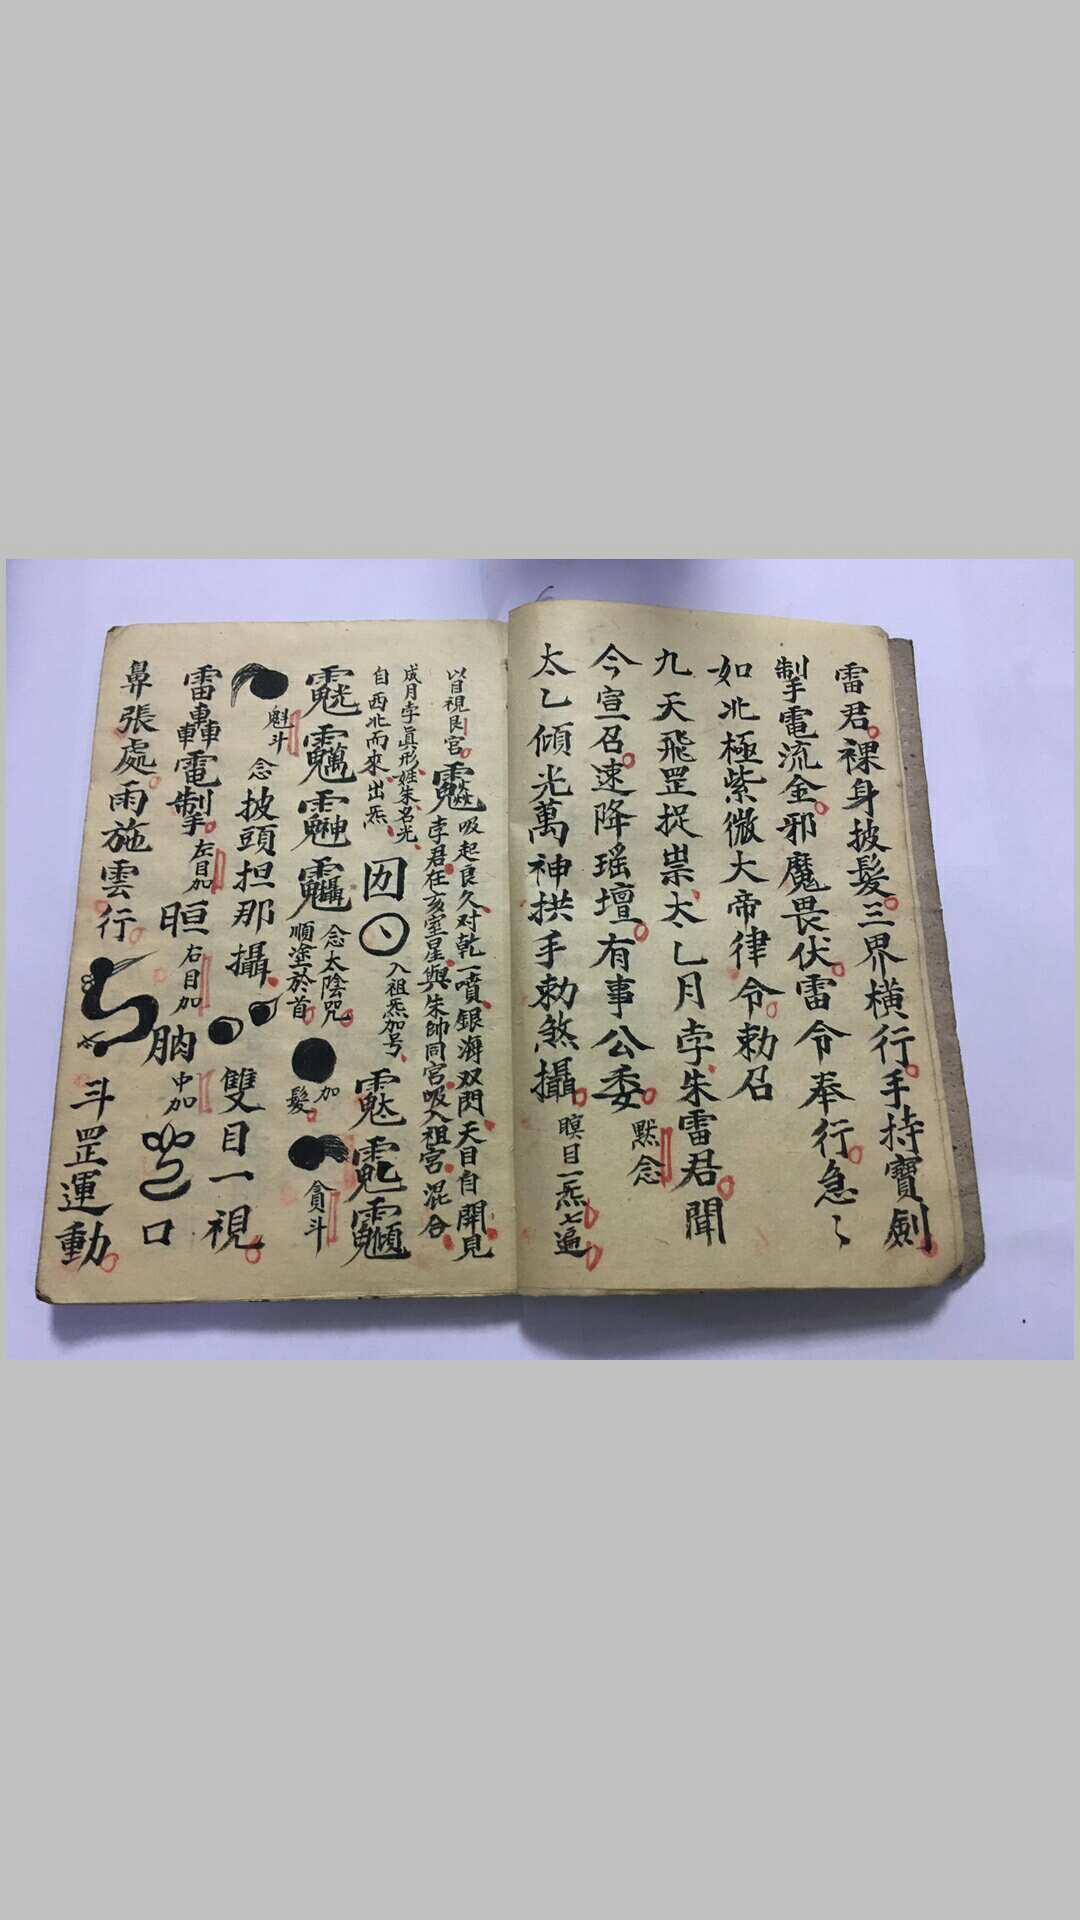 雷君裸身披髮三界橫行手持寶劍
掣電流金邪魔畏伏雷令奉行急〻
如北極紫微大帝律令勅召
九天飛罡捉祟太乙月孛朱雷君聞
今宣召速降瑶壇有事公委 默念
太乙傾光萬神拱手勅煞攝 瞑目一炁七遍
以目視艮宫 吸起良久对乾一噴銀海双閃天目自開見
孛君在亥室星與朱帥同宫吸入祖宫混合
成月孛眞形姓朱名光
自西北而來出炁 入祖炁加号
念太陰咒
順塗於首 加髮 貪斗
魁斗 念披頭担那攝 雙目一視
雷轟電掣 左目加 右目加 中加 口
鼻張處雨施雲行 斗罡運動